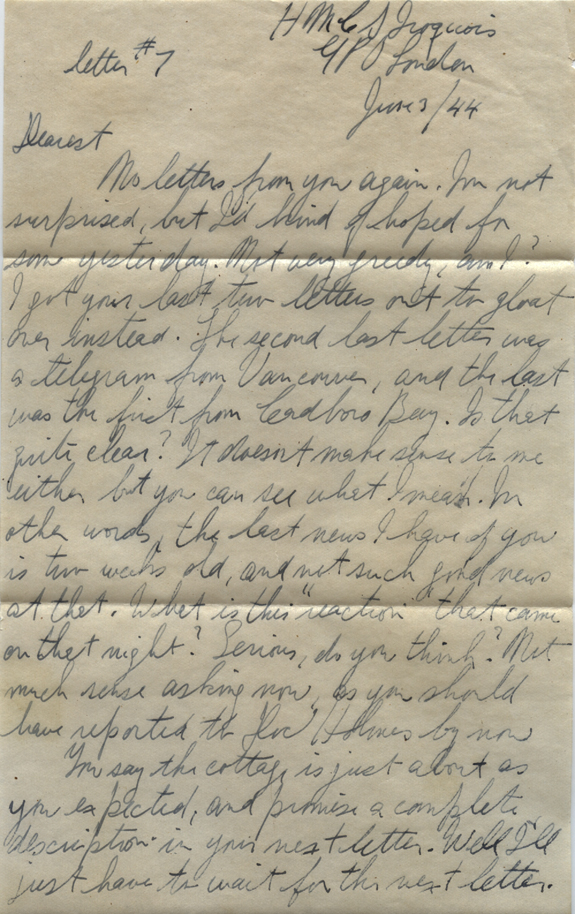 H M C S Iroquois
letter #7
G P O London
June 3/44
Dearest
No letters from you again. I'm not
surprised, but I'd kind of hoped for
some yesterday. Not very greedy, am I?
I got your last two letters out to gloat
over instead. The second last letter was
a telegram from Vancouver, and the last
was the first from Cadboro Bay. Is that
quite clear? It doesn't make sense to me
either but you can see what I mean. In
other words, the last news I have of you
is two weeks old, and not such good news
at that. What is this "reaction" that came
on that night? Serious, do you think? Not
much sense asking now, as you should
have reported to Doc Holmes by now
You say the cottage is just about as
you expected, and promise a complete
description in your next letter. Well I'll
just have to wait for the next letter.